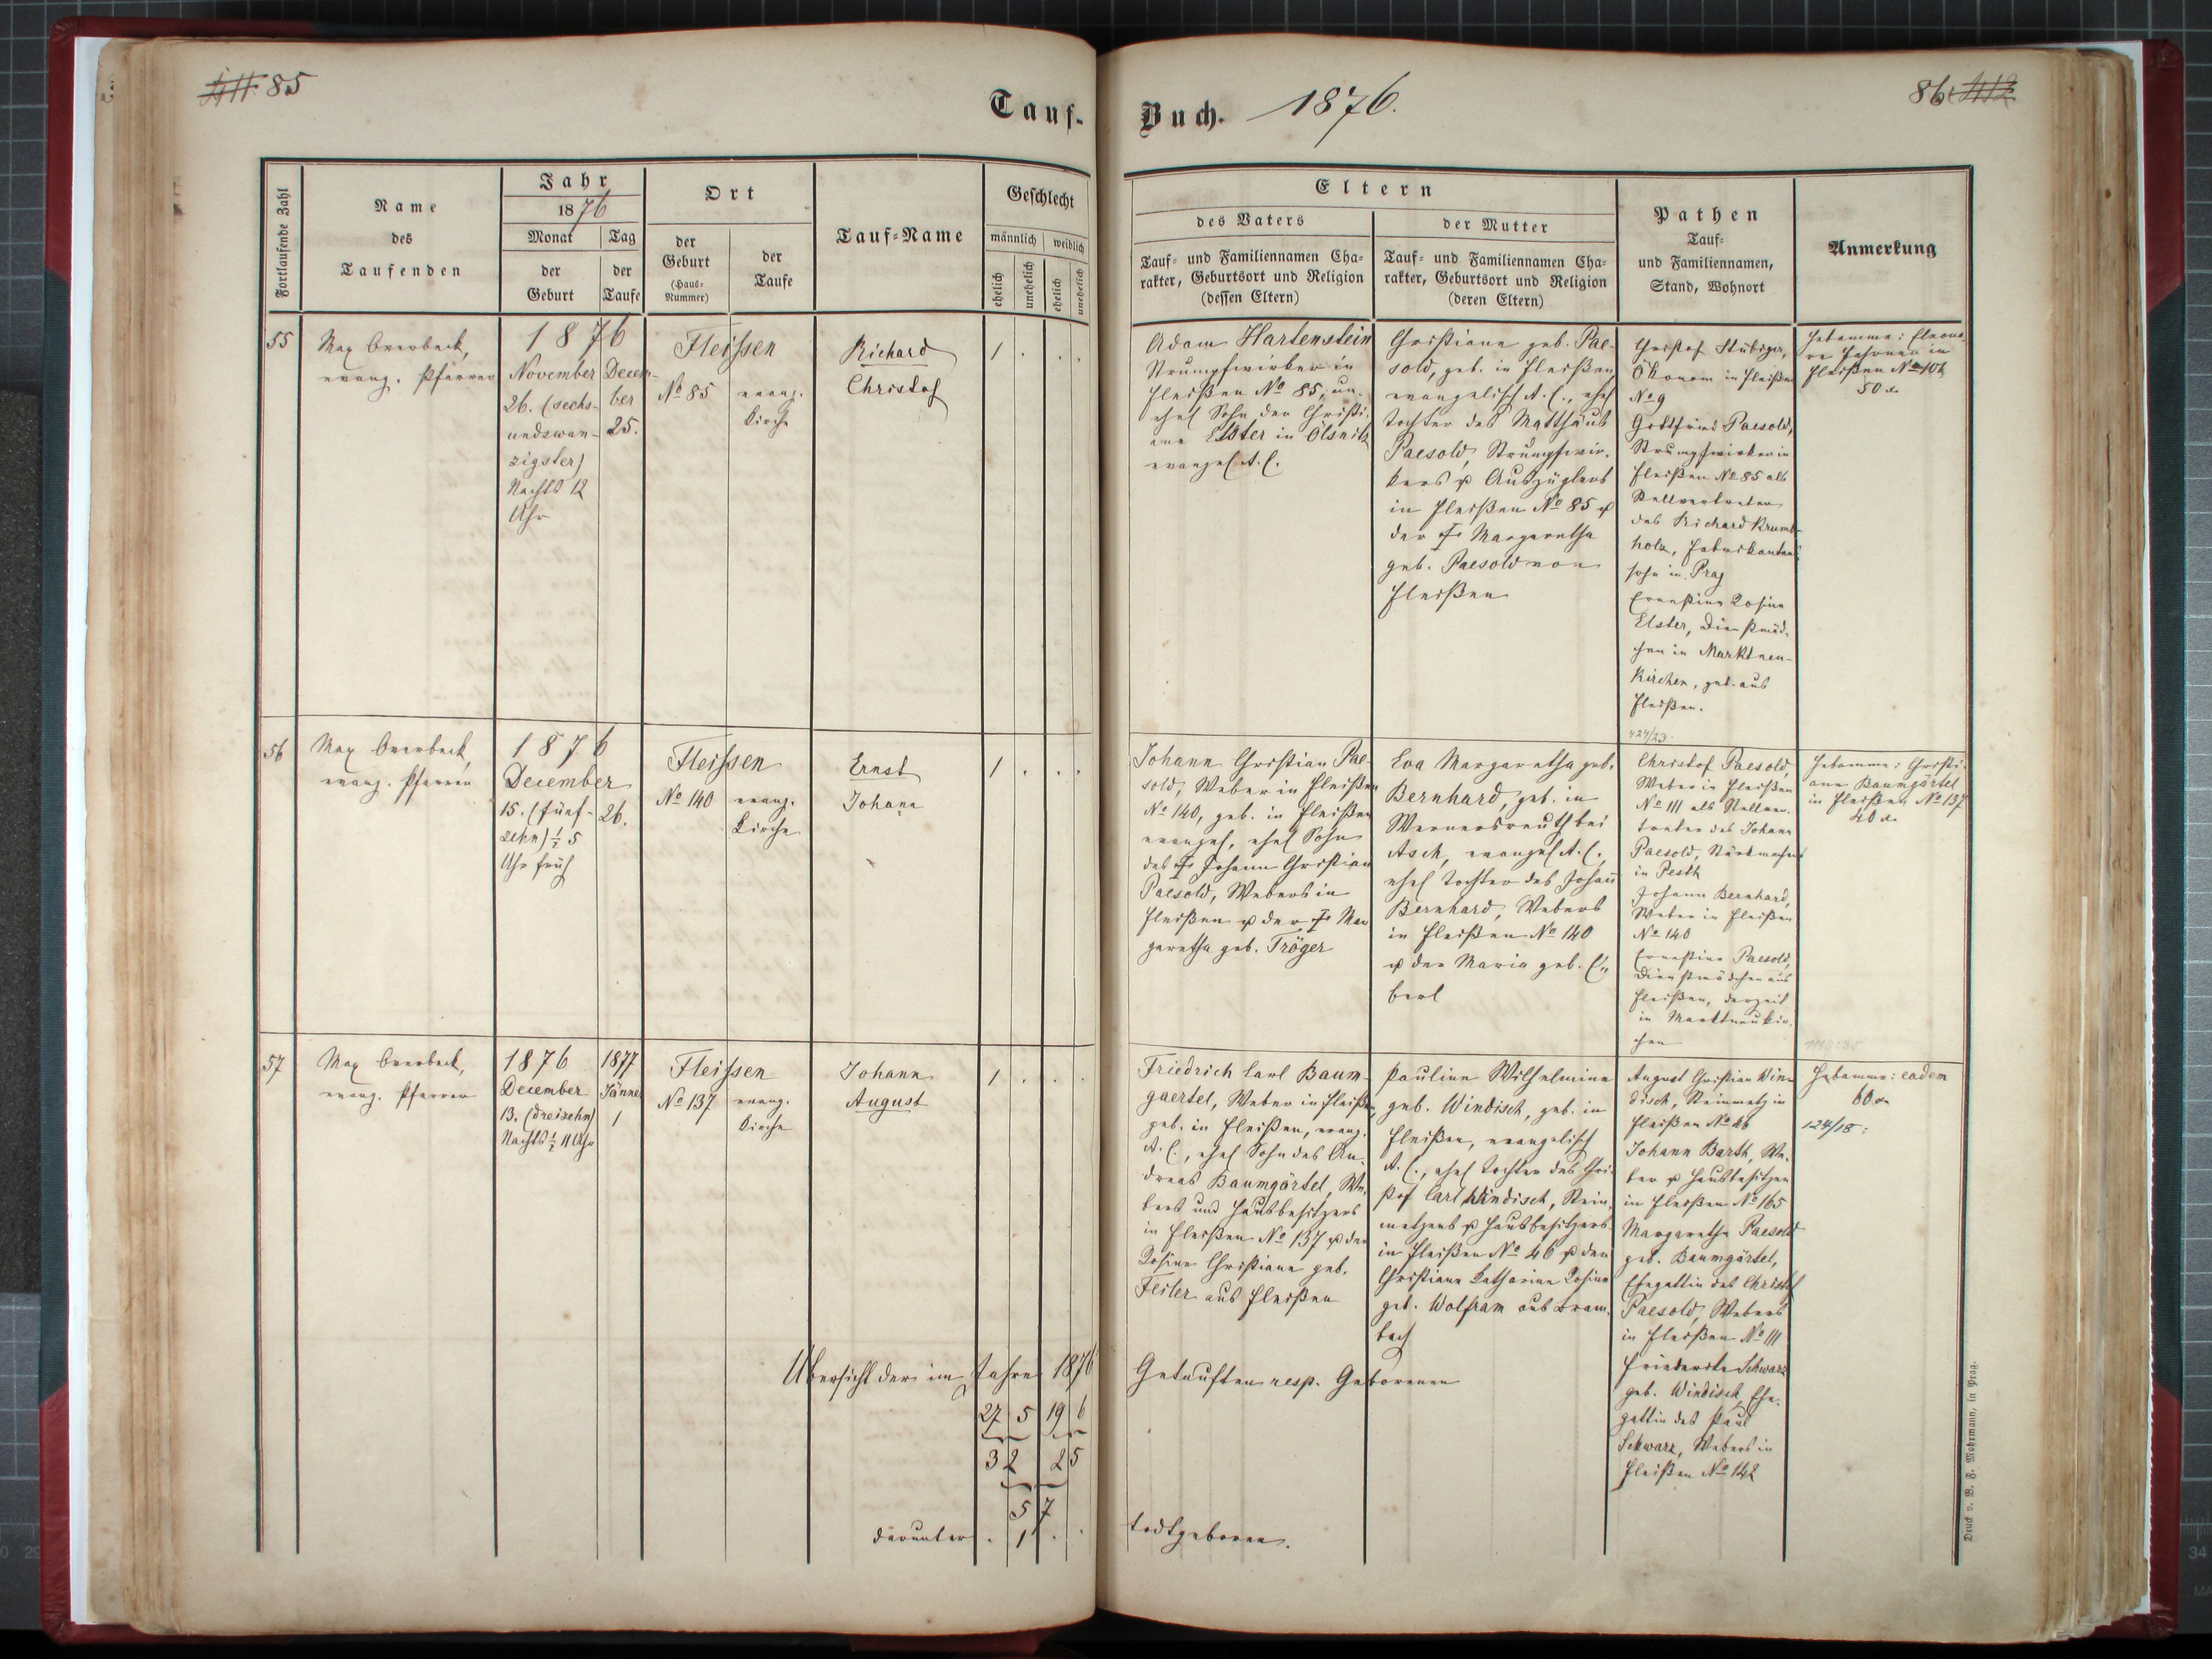 85
Tauf-
Fortlaufende Zahl
Name
des
Taufenden
Jahr
1876
Monat
der
Geburt
Tag
der
Taufe
Ort
der
Geburt
(Haus-
Nummer)
der
Taufe
Tauf-Name
Geschlecht
männlich
weiblich
ehelich
unehelich
ehelich
unehelich
55
Max Overbeck,
evang. Pfarrer
1876
November
26. (sechs-
undzwan-
zigster)
Nachts 12
Uhr
Decem-
ber
25.
Fleissen
No 85
evang.
Kirche
Richard
Christof
1 . . .
56
Max Overbeck,
evang. Pfarrer
1876
December
15. (fünf-
zehn) ½ 5
Uhr früh
26.
Fleissen
No 140
evang.
Kirche
Ernst
Johann
1 . . .
57
Max Overbeck,
evang. Pfarrer
1876
December
13. (dreizehn)
Nachts ½ 11 Uhr
1877
Jänner
1
Fleissen
No 137
evang.
Kirche
Johann
August
1 . . .
Übersicht der im Jahre 1876
27 5 19 6
32 25
57
darunter . 1 . .
Buch. 1876.
86
Eltern
des Vaters
Tauf- und Familiennamen Cha-
rakter, Geburtsort und Religion
(dessen Eltern)
der Mutter
Tauf- und Familiennamen Cha-
rakter, Geburtsort und Religion
(deren Eltern)
Pathen
Tauf-
und Familiennamen,
Stand, Wohnort
Anmerkung
Adam Hartenstein
Strumpfwirker in
Fleißen No 85, un-
ehel Sohn der Christi-
ane Elster in Ölsnitz
evangel A. C.
Christiane geb. Pae-
sold, geb. in Fleißen
evangelisch A. C., ehel
Tochter des Matthäus
Paesold, Strumpfwir-
kers u Auszüglers
in Fleißen No 85 u
der † Margaretha
geb. Paesold von
Fleißen
Christof Stübiger,
Ökonom in Fleißen
No 9
Gottfried Paesold,
Strumpfwirker in
Fleißen No 85 als
Stellvertreter
des Richard Krumb-
holz, Fabrikanten-
sohn in Prag
Ernestine Rosine
Elster, Dienstmäd-
chen in Marktneu-
kirchen, geb. aus
Fleißen.
Hebamme: Eleono-
re in
Fleißen No 104
50 x
Johann Christian Pae-
sold, Weber in Fleißen
No 140, geb. in Fleißen
evangel, ehel Sohn
des † Johann Christian
Paesold, Webers in
Fleißen u der † Mar
garetha geb. Tröger
Eva Margaretha geb.
Bernhard, geb. in
Wernersreuth bei
Asch, evangel A. C.,
ehel Tochter des Johann
Bernhard, Webers
in Fleißen No 140
u der Maria geb.
Christof Paesold,
Weber in Fleißen
No 111 als Stellver-
treter des Johann
Paesold,
in Pesth
Johann Bernhard,
Weber in Fleißen
No 140
Ernestine Paesold,
Dienstmädchen aus
Fleißen, derzeit
in Marktneukir-
chen
Hebamme: Christi-
ane Baumgärtel
in Fleißen No 137
40 x
Friedrich Carl Baum-
gaertel, Weber in Fleißen,
geb. in Fleißen, evang.
A. C., ehel Sohn des An-
dreas Baumgärtel, We-
bers und Hausbesitzers
in Fleißen No 137 u der
Rosine Christiane geb.
Feiler aus Fleißen
Pauline Wilhelmine
geb. Windisch, geb. in
Fleißen, evangelisch
A. C., ehel Tochter des Chri-
stof Carl Windisch, Stein-
metzens u Hausbesitzers
in Fleißen No 46 u der
Christiane Katharine Rosine
geb. Wolfram aus Bram-
bach
August Christian Win-
disch, Steinmetz in
Fleißen No 46
Johann Barth, We-
ber u Hausbesitzer
in Fleißen No 165
Margaretha Paesold
geb. Baumgärtel,
Ehegattin des Christof
Paesold, Webers
in Fleißen No 111
Friederike Schwarz
geb. Windisch, Ehe-
gattin des Paul
Schwarz, Webers in
Fleißen No 142
Hebamme: eadem
60 x
124/18:
Getauften resp. Geborenen
todtgeboren.
Druck v. B. F. Mohrmann, in Prag.